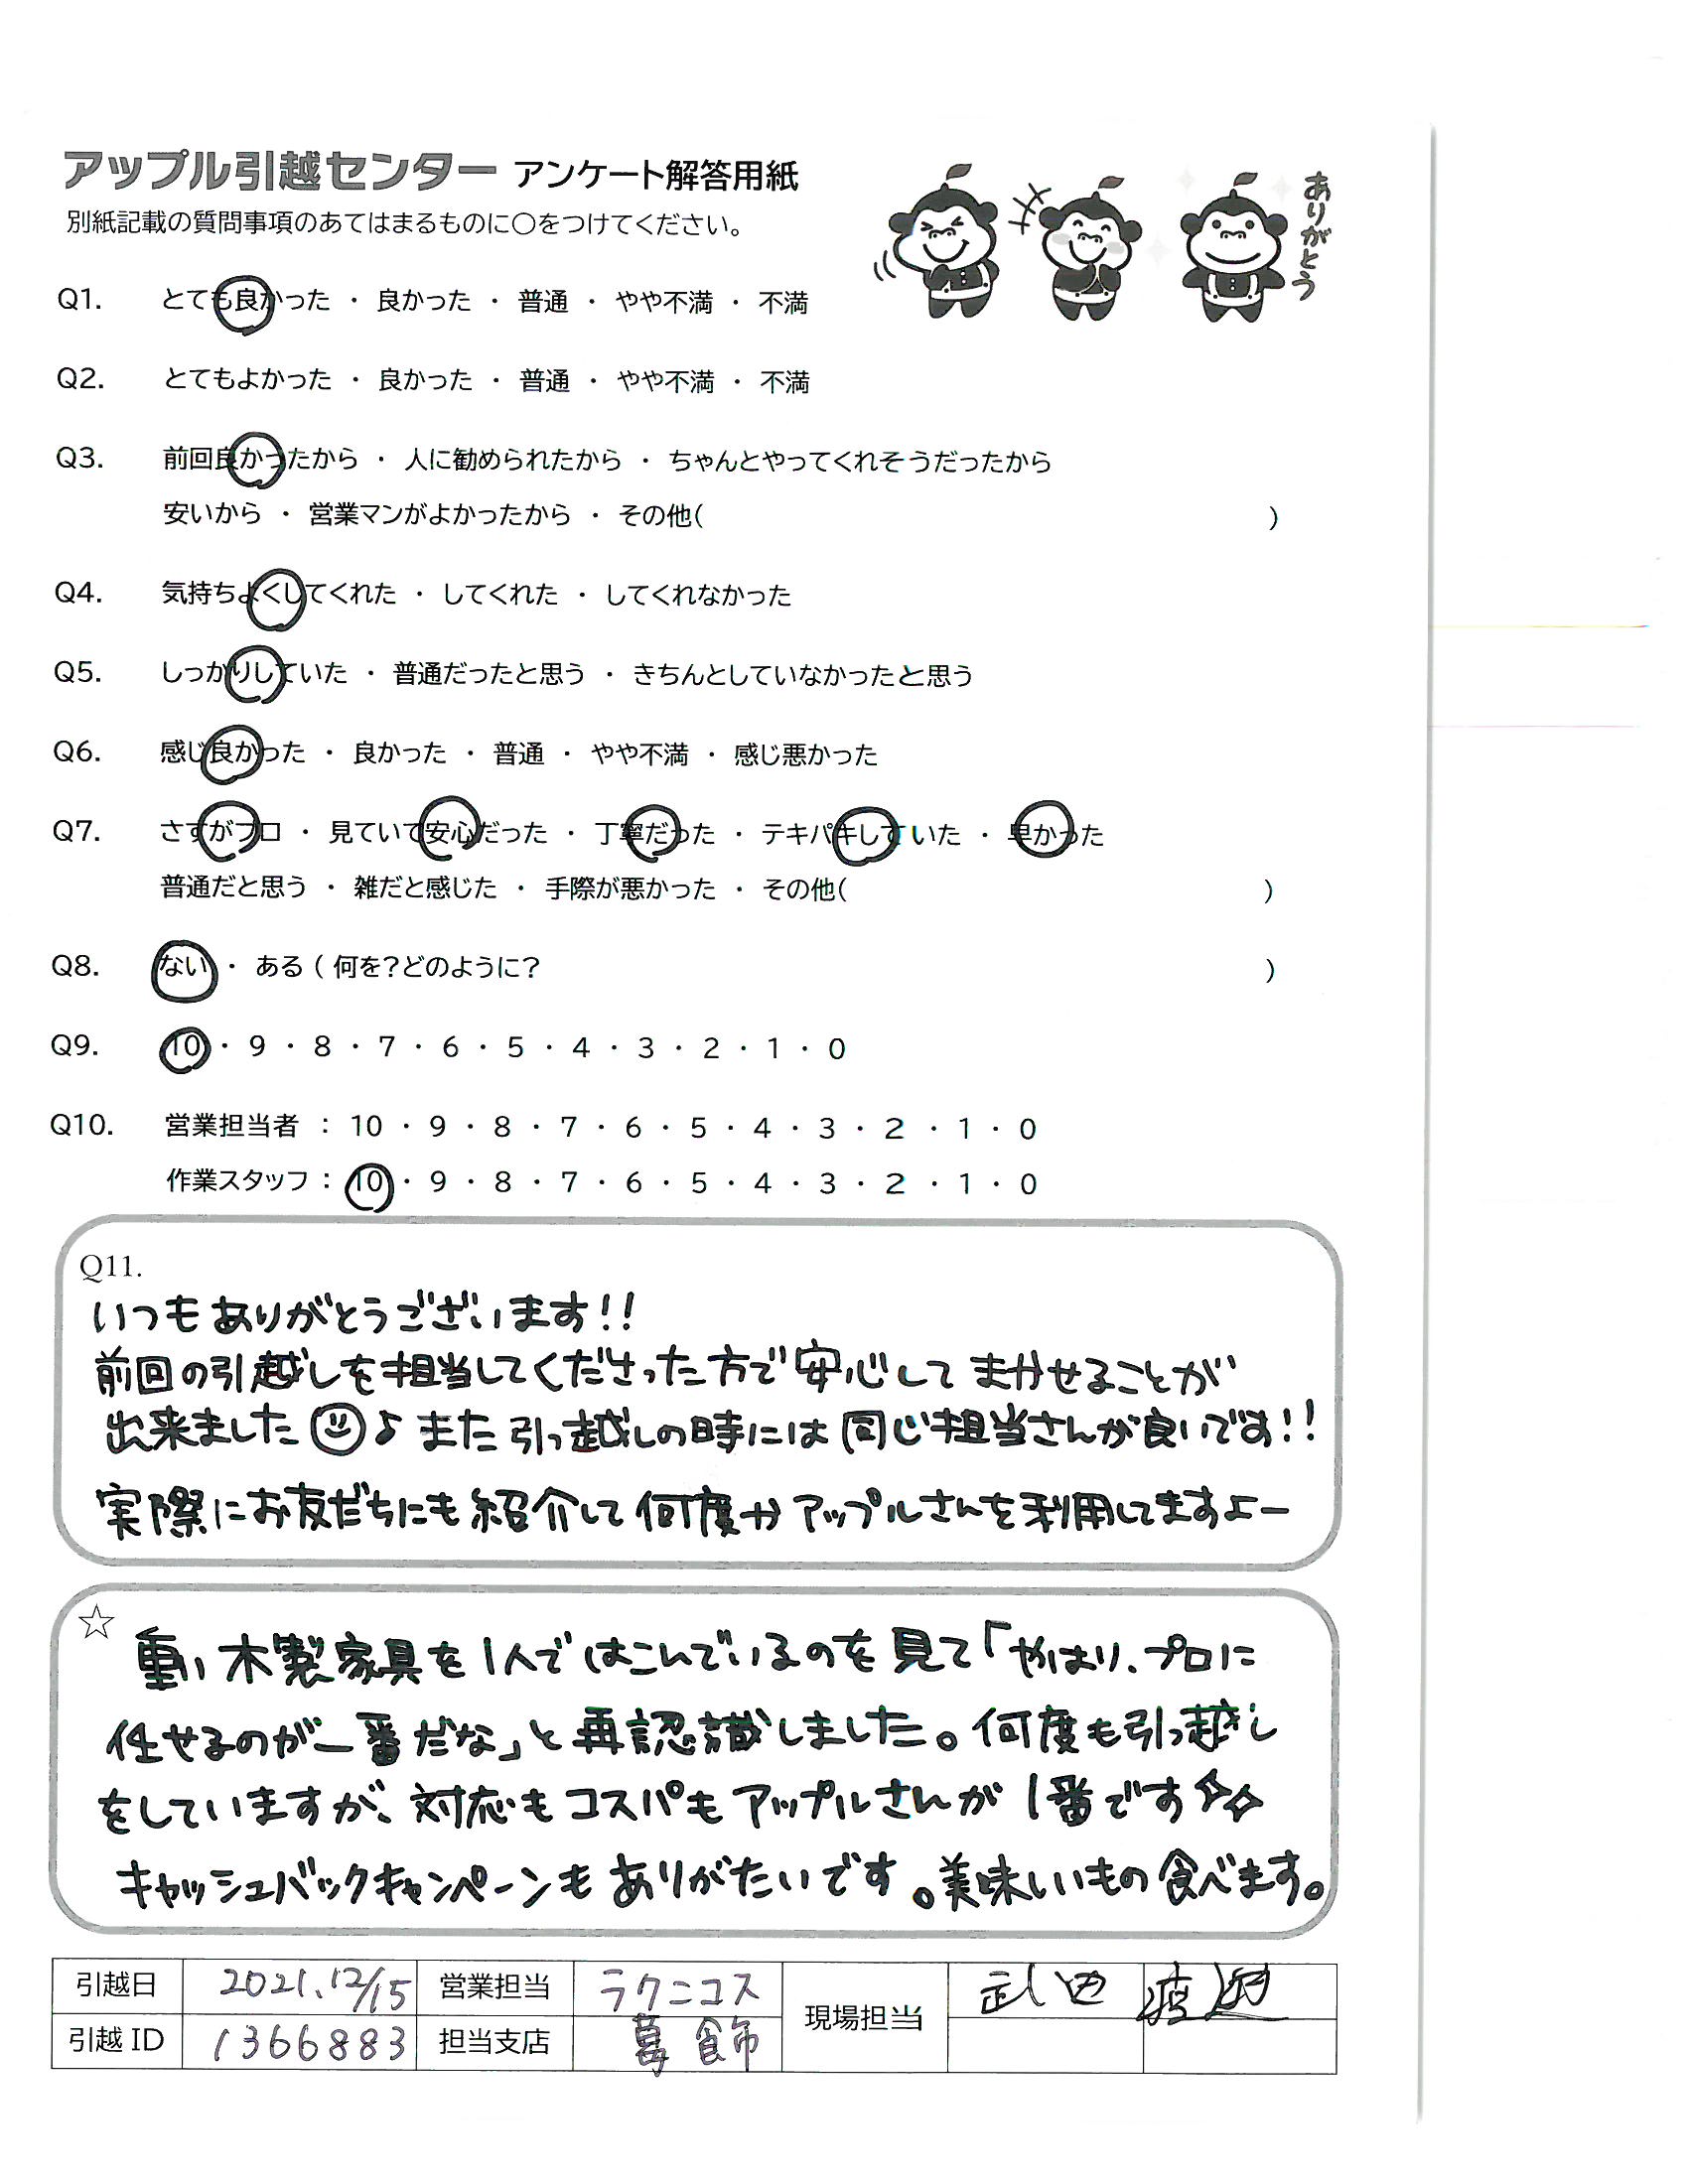 アップル引越センター アンケート解答用紙
別紙記載の質問事項のあてはまるものに○をつけてください。
ありがとう
Q1. とても良かった ・ 良かった ・ 普通 ・ やや不満 ・ 不満
Q2. とてもよかった ・ 良かった ・ 普通 ・ やや不満 ・ 不満
Q3. 前回良かったから ・ 人に勧められたから ・ ちゃんとやってくれそうだったから
安いから ・ 営業マンがよかったから ・ その他( )
Q4. 気持ちよくしてくれた ・ してくれた ・ してくれなかった
Q5. しっかりしていた ・ 普通だったと思う ・ きちんとしていなかったと思う
Q6. 感じ良かった ・ 良かった ・ 普通 ・ やや不満 ・ 感じ悪かった
Q7. さすがプロ ・ 見ていて安心だった ・ 丁寧だった ・ テキパキしていた ・ 早かった
普通だと思う ・ 雑だと感じた ・ 手際が悪かった ・ その他( )
Q8. ない ・ ある ( 何を?どのように? )
Q9. 10 ・ 9 ・ 8 ・ 7 ・ 6 ・ 5 ・ 4 ・ 3 ・ 2 ・ 1 ・ 0
Q10. 営業担当者 : 10 ・ 9 ・ 8 ・ 7 ・ 6 ・ 5 ・ 4 ・ 3 ・ 2 ・ 1 ・ 0
作業スタッフ : 10 ・ 9 ・ 8 ・ 7 ・ 6 ・ 5 ・ 4 ・ 3 ・ 2 ・ 1 ・ 0
Q11.
いつもありがとうございます!!
前回の引越しを担当してくださった方で安心してまかせることが
出来ました☺♪また引っ越しの時には同じ担当さんが良いです!!
実際にお友だちにも紹介して何度かアップルさんを利用してますよー
☆ 重い木製家具を1人ではこんでいるのを見て「やはり、プロに
任せるのが一番だな」と再認識しました。何度も引っ越し
をしていますが、対応もコスパもアップルさんが1番です☆☆
キャッシュバックキャンペーンもありがたいです。美味しいもの食べます。
引越日 2021.12/15 営業担当 ラクニコス 現場担当 武田 渡辺
引越ID 1366883 担当支店 葛飾